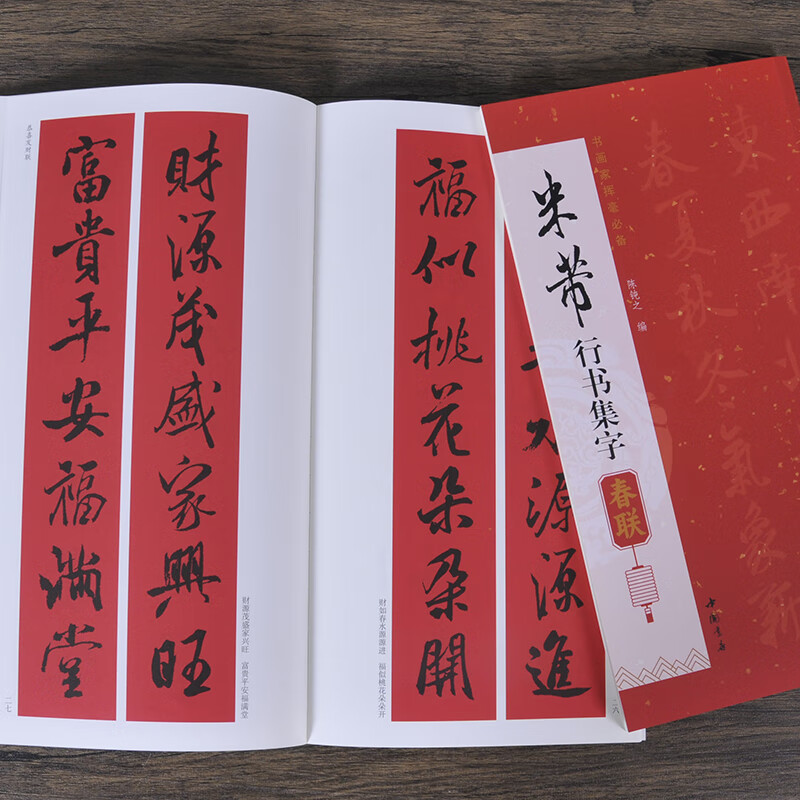 财源茂盛家興旺
富貴平安福满堂
恭喜发财联
财源茂盛家兴旺 富贵平安福满堂
二七
源源進
福似桃花朵朵開
财如春水源源进 福似桃花朵朵开
二六
书画家挥毫必备
米芾
行书集字
春联
陈钝之 编
中国书店
東西南北
春夏秋冬氣象新